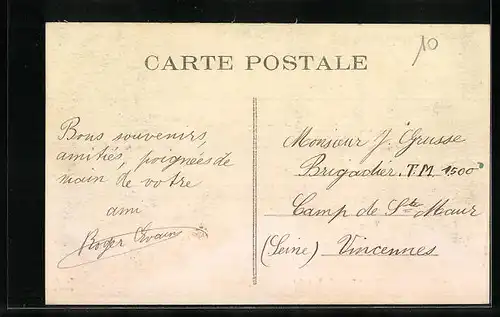 10
CARTE POSTALE
Bons souvenirs,
amitiés, poignées de
main de votre
ami
Roger Evain
Monsieur J. Grusse
Brigadier. T.M. 1500
Camp de Ste Maur
(Seine) Vincennes